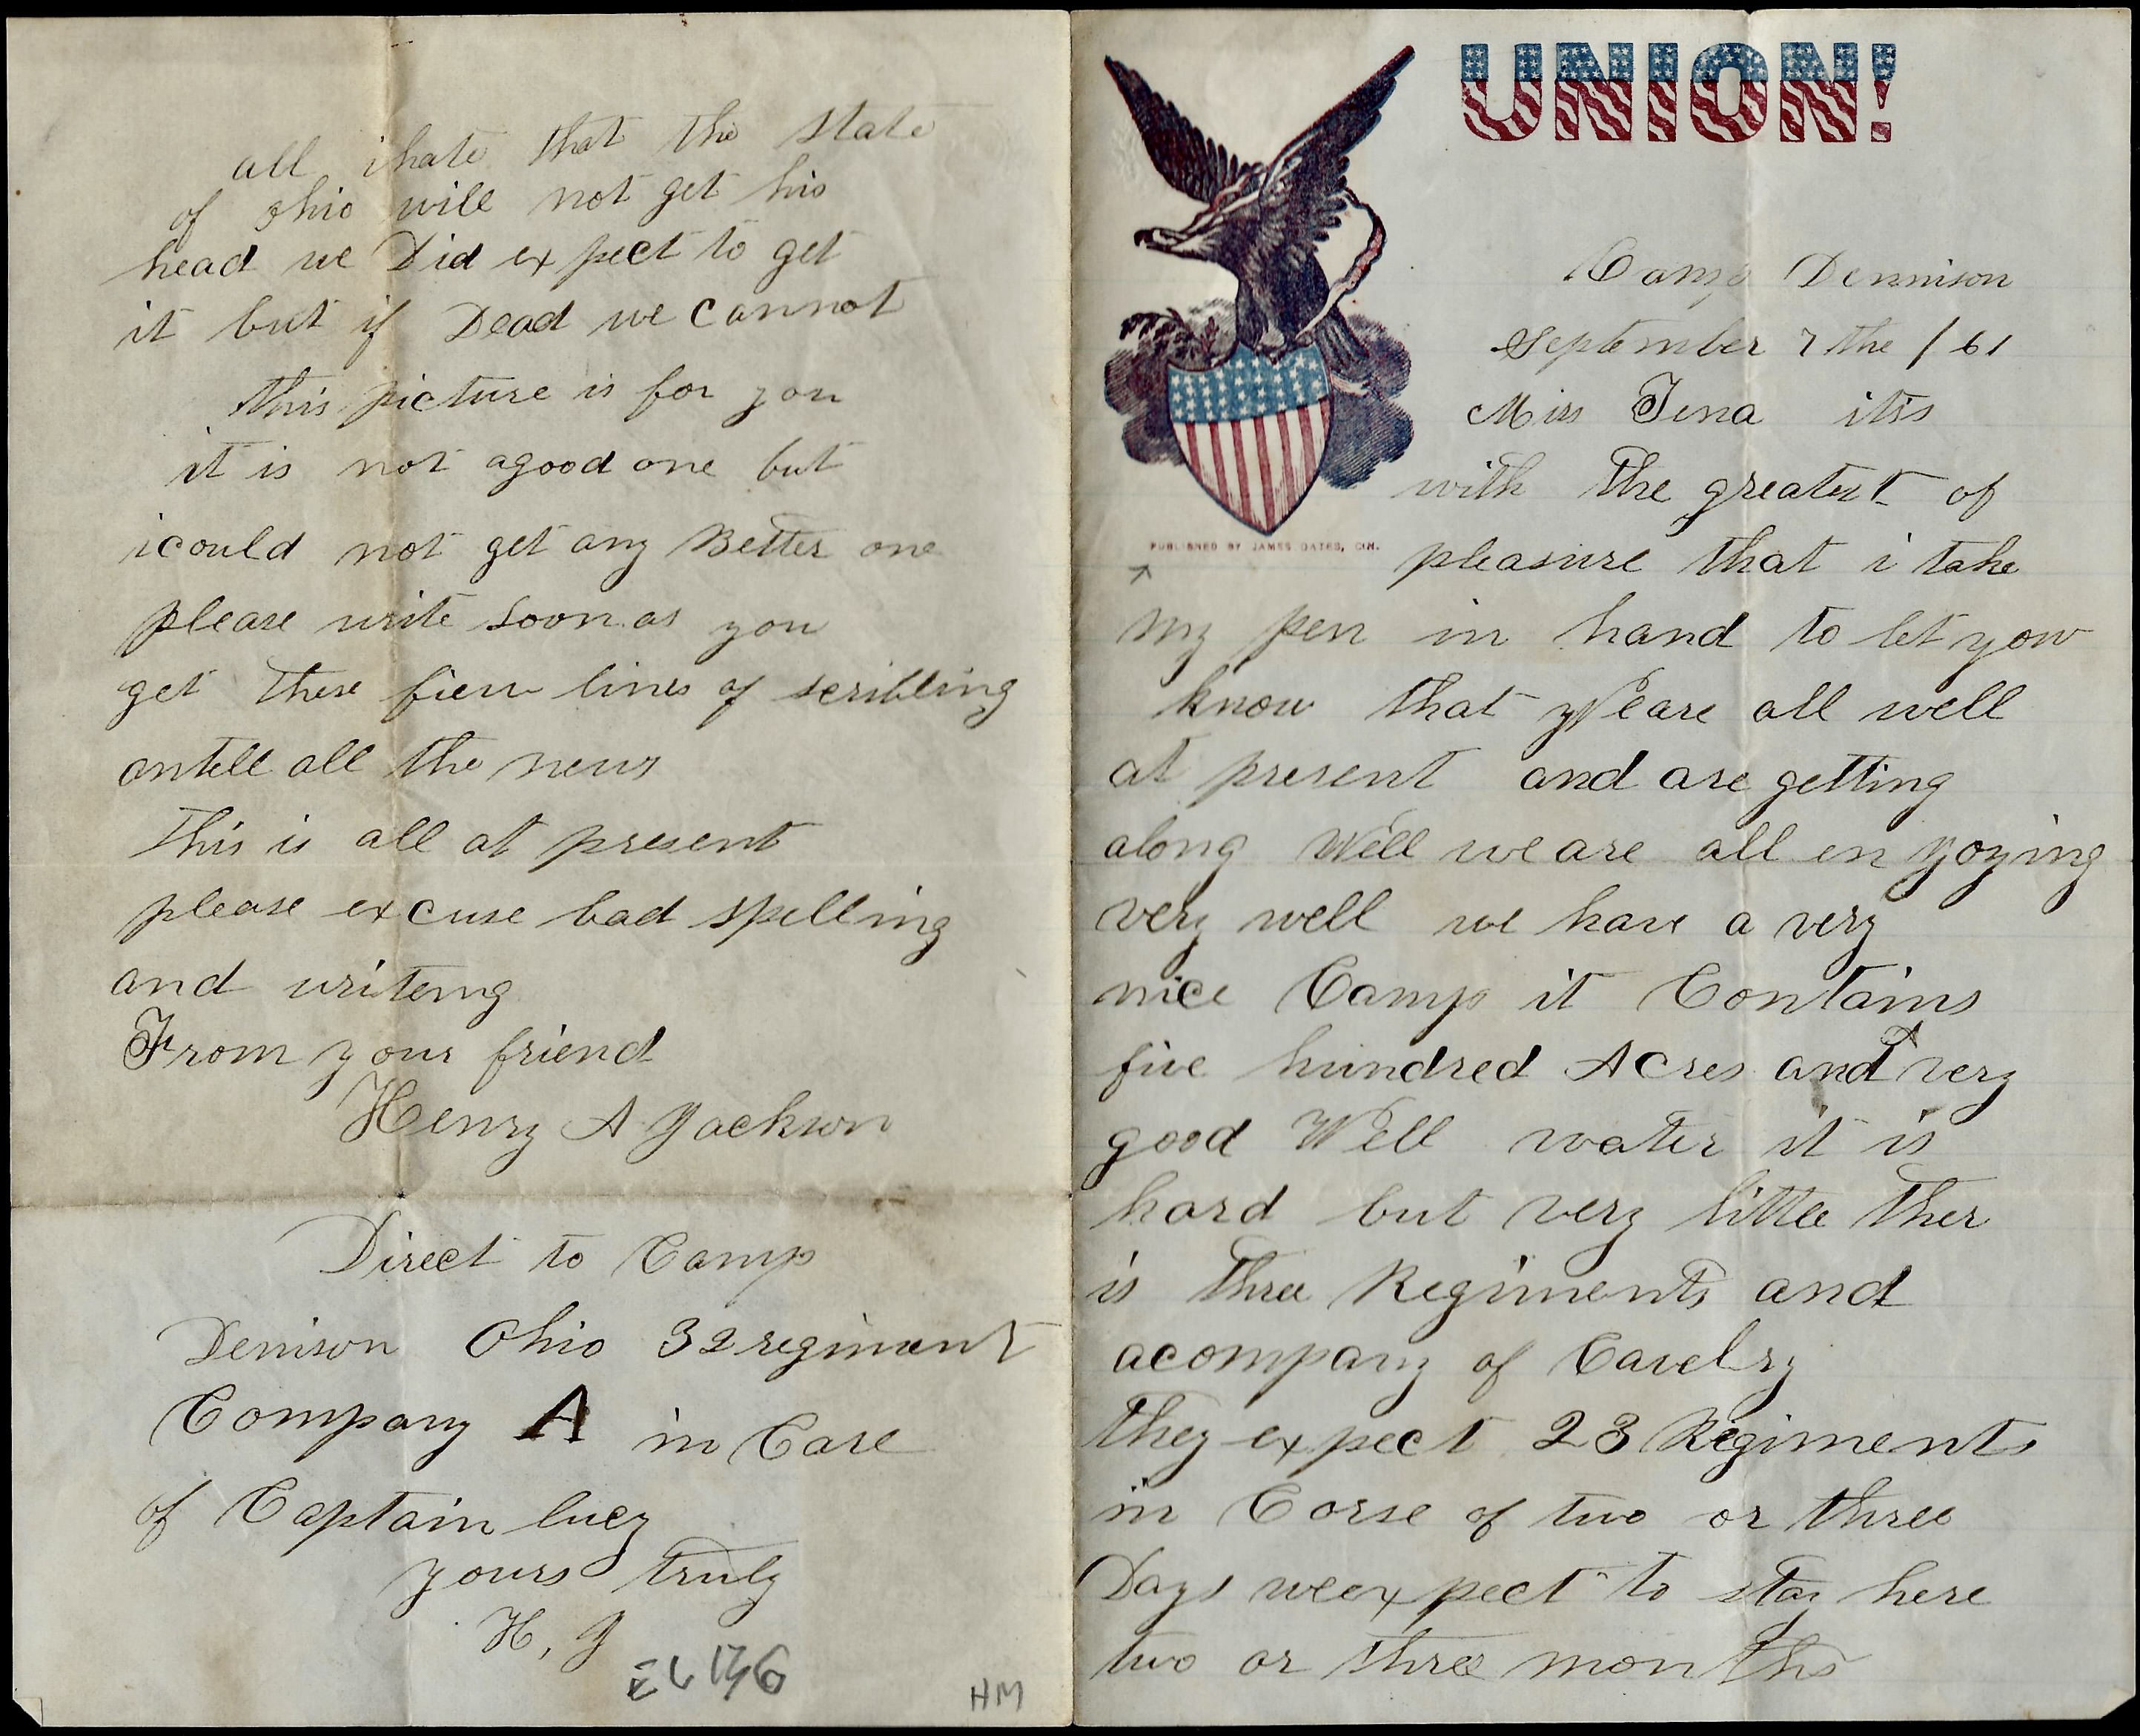 UNION!
PUBLISHED BY JAMES GATES, CIN.
Camp Dennison
September 7 the / 61
Miss Tena itis
with the greatest of
pleasure that i take
my pen in hand to let you
know that We are all well
at present and are getting
along Well we are all en yoying
very well we have a very
nice Camp it Contains
five hundred Acres and A very
good Well water it is
hard but very little ther
is three Regiments and
acompany of Cavelry
they expect 23 Regiments
in Corse of two or three
Days we expect to stay here
two or three months
all ihate that the state
of ohio will not get his
head we Did expect to get
it but if Dead we cannot
this picture is for you
it is not agood one but
icould not get any Better one
please write soon as you
get these fiew lines of scribling
antell all the news
This is all at present
please excuse bad spelling
and writeing
From your friend
Henry A Jackson
Direct to Camp
Denison Ohio 32 regiment
Company A in Care
of Captain lucy
yours truly
H, J
HM